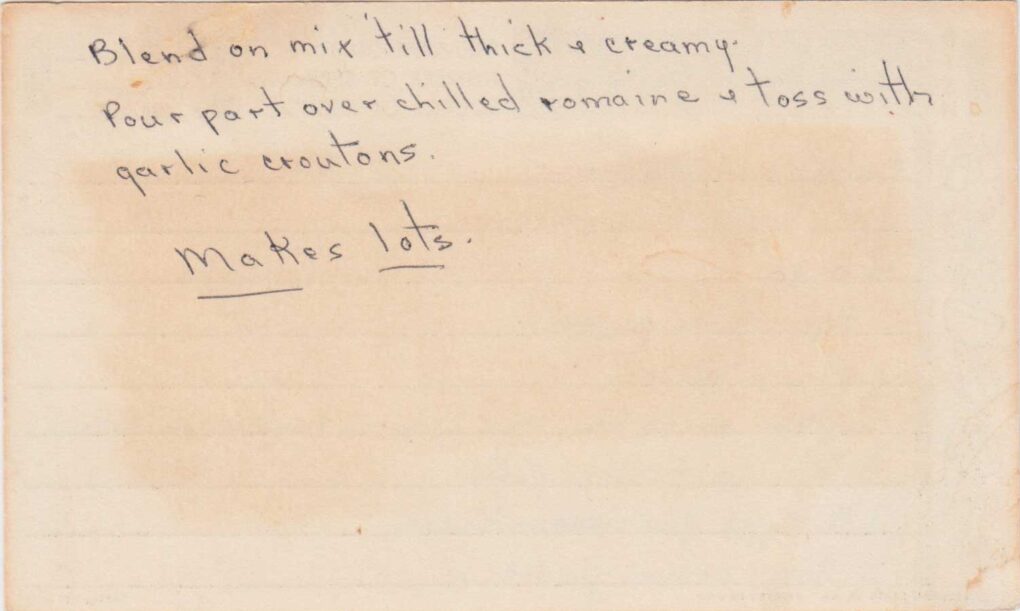 Blend on mix 'till thick & creamy.
Pour part over chilled romaine & toss with
garlic croutons.
Makes lots.